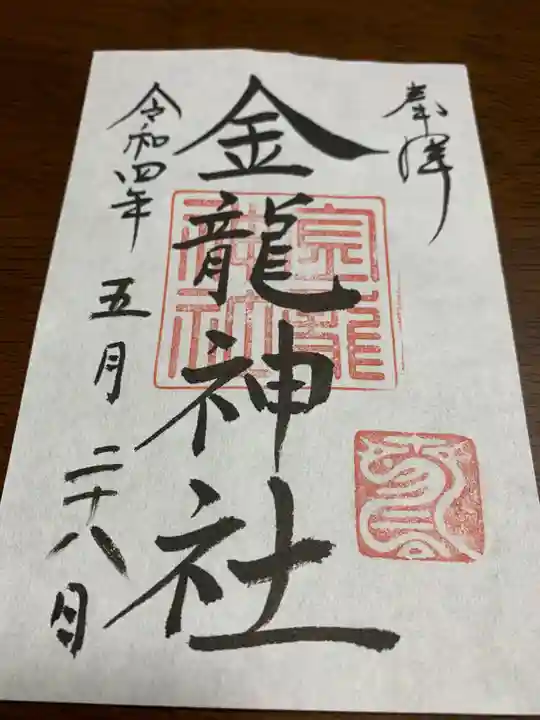 奉拝
金龍神社
令和四年
五月二十八日